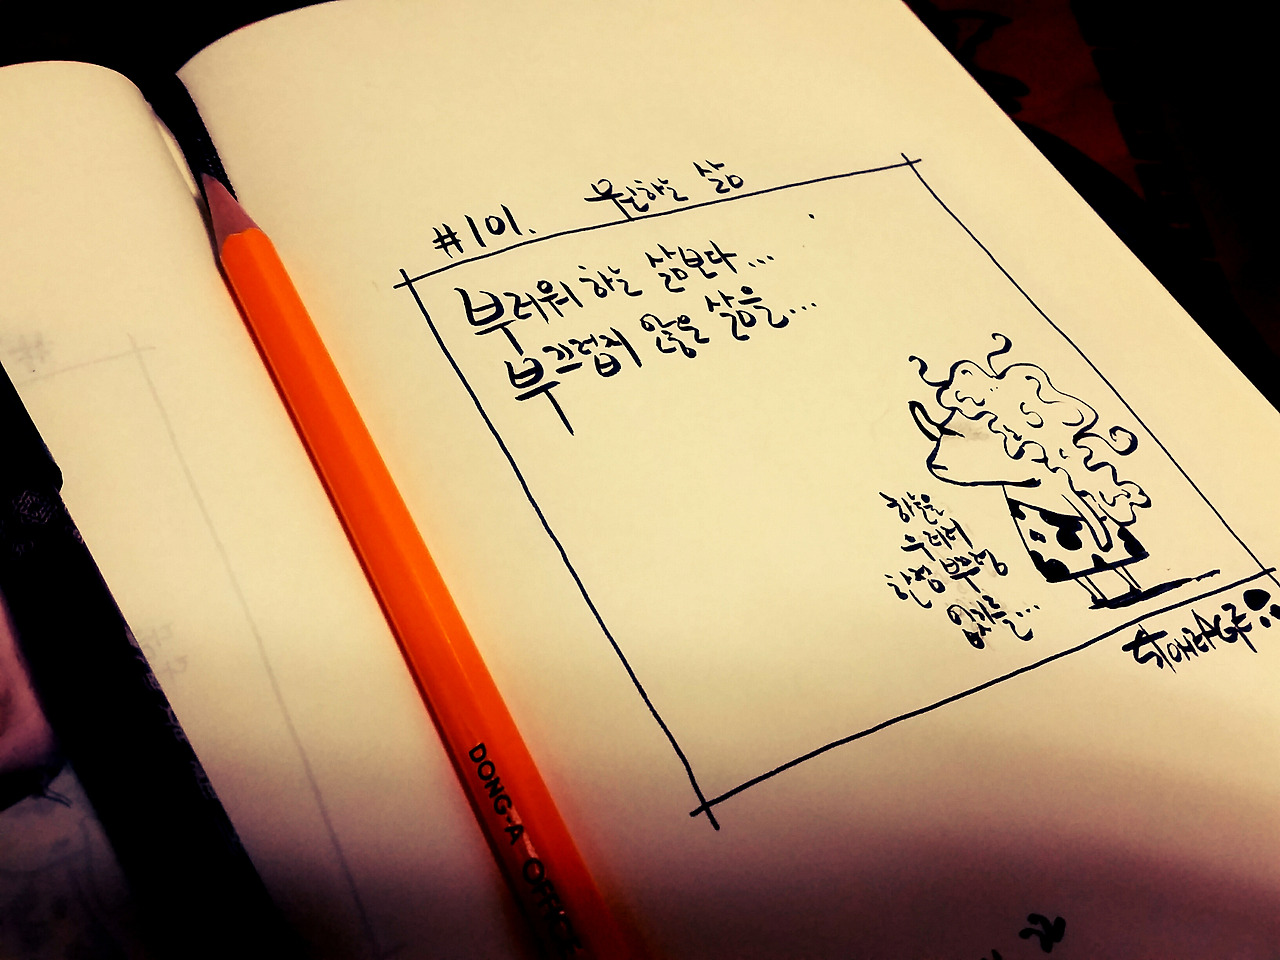 #101. 원하는 삶
부러워 하는 삶보다...
부끄럽지 않은 삶을...
하늘을
우러러
한점 부끄럼
없기를...
STONEAGE
DONG-A OFFICE